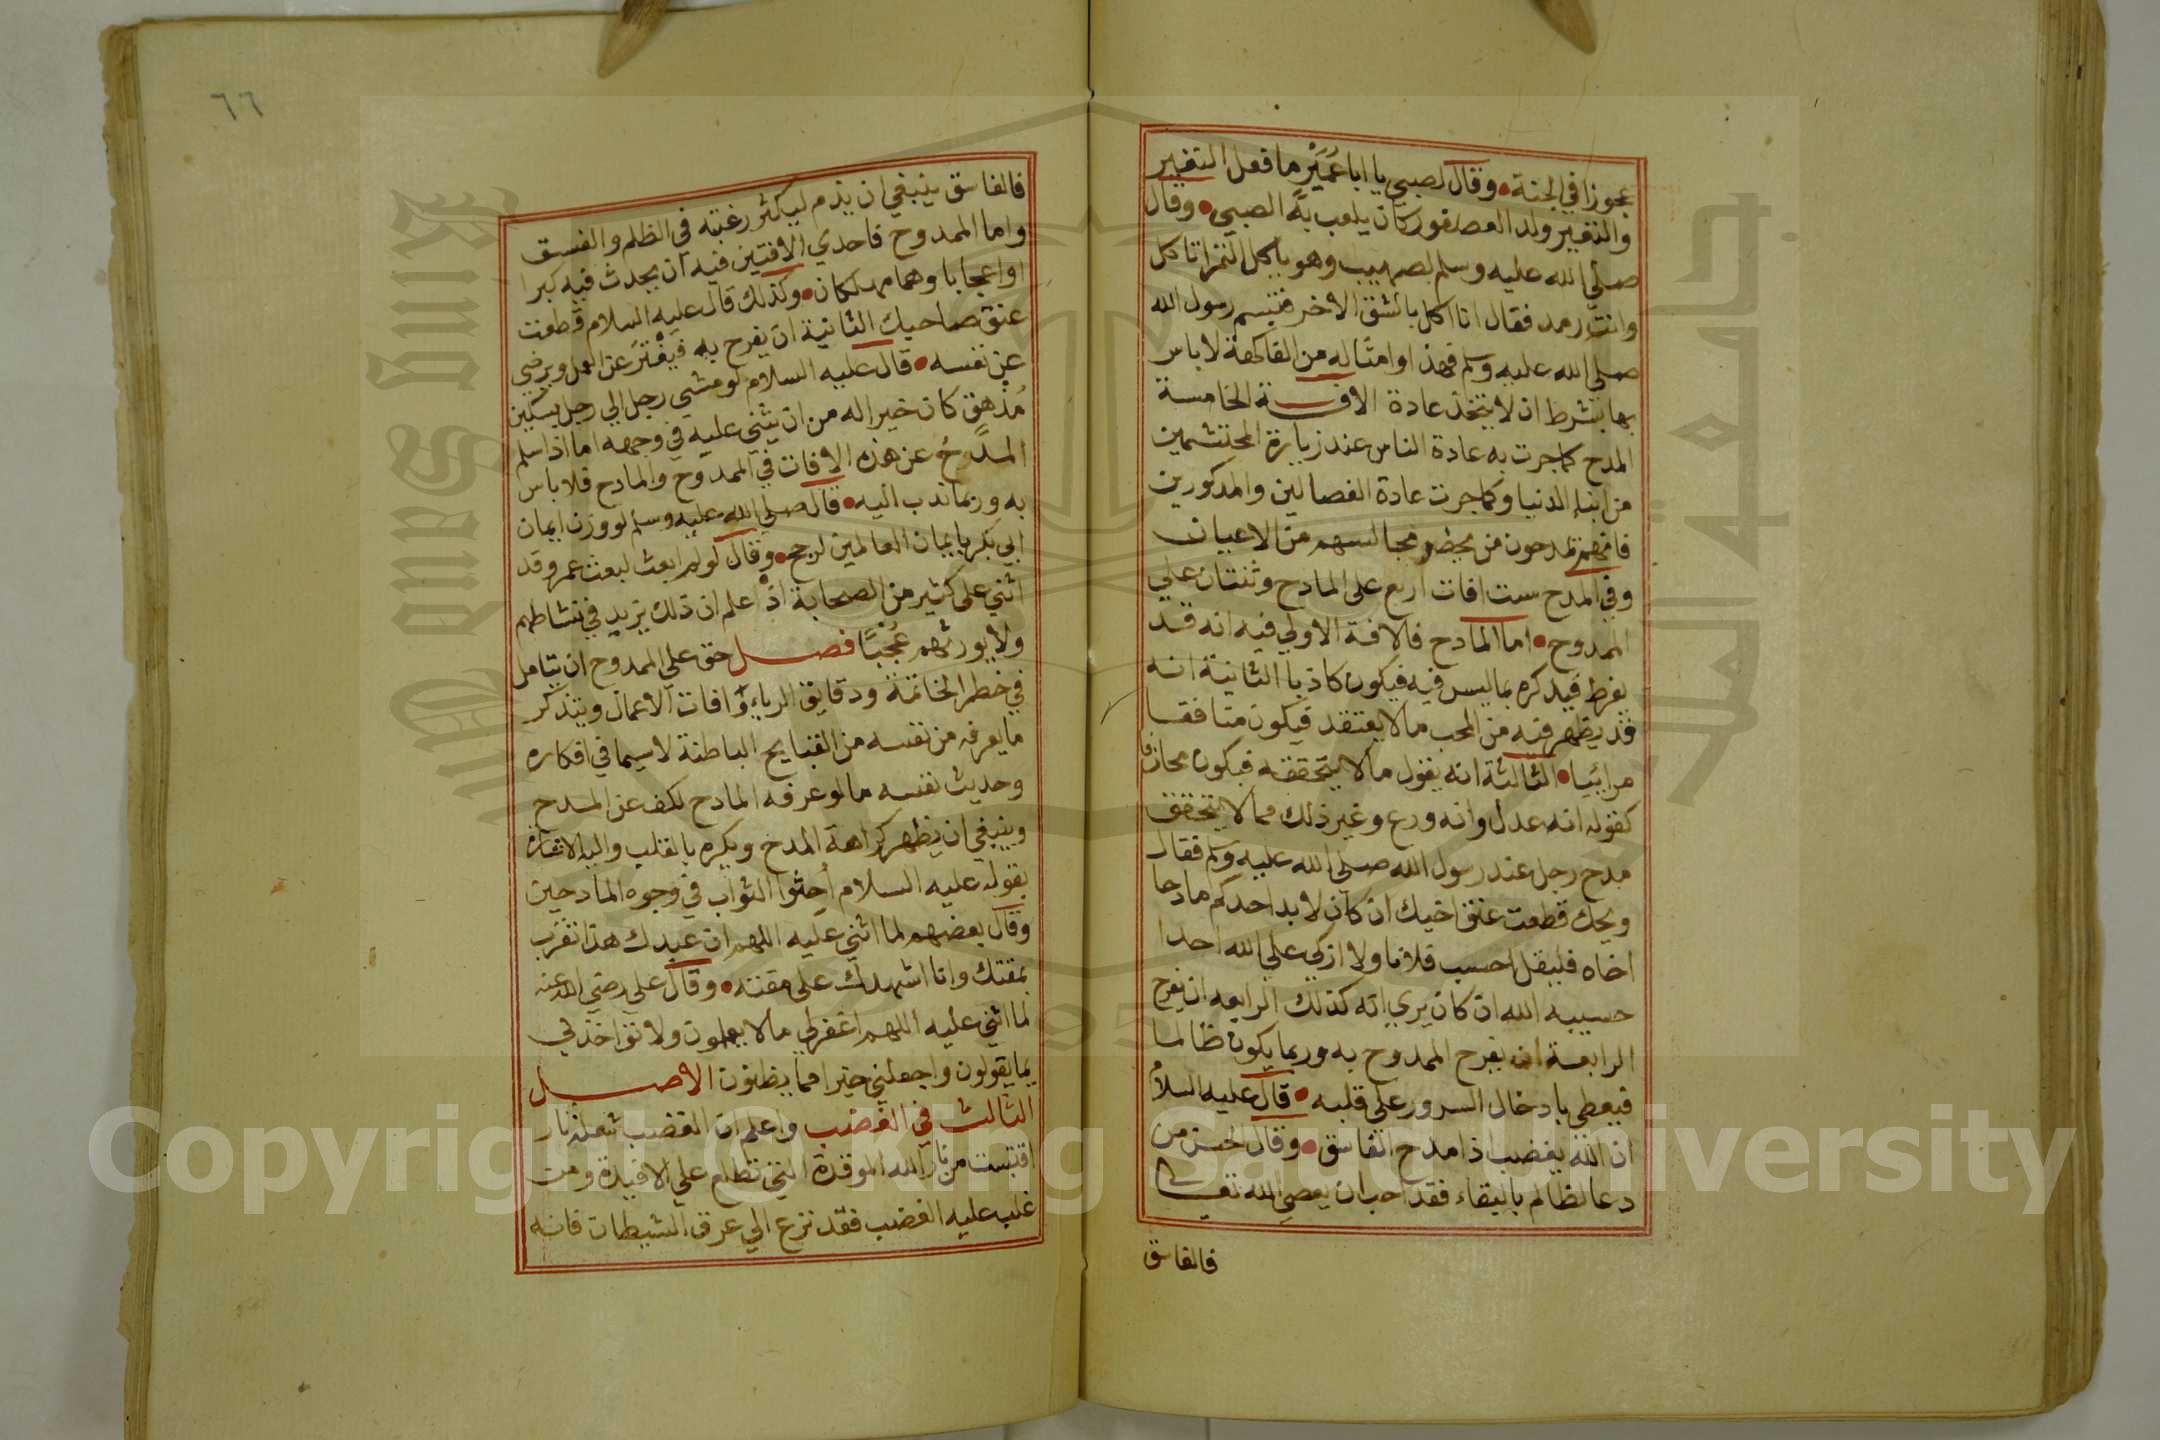 عجوزا في الجنة • وقال لصبي يا ابا عُمَيْر ما فعل النغير
والنغير ولد العصفور كان يلعب به الصبي • وقال
صلي الله عليه وسلم لصهيب وهو ياكل التمر اتاكل
وانت رمد فقال انا اكل بالشق الاخر فتبسم رسول الله
صلي الله عليه وسلم فهذا وامثاله من الفاكهة لا باس
بها بشرط ان لا يتخذ عادة الافة الخامسة
المدح كما جرت به عادة الناس عند زيارة المحتشمين
من ابناء الدنيا وكما جرت عادة القصالين والمدكورين
فانهم يمدحون من يحضر مجالسهم من الاعيان
وفي المدح ست افات اربع على المادح وثنتان علي
الممدوح • اما المادح فالافة الاولي فيه انه قد
يفرط فيذكره بما ليس فيه فيكون كاذبا الثانية انه
قد يظهر فيه من المحب ما لا يعتقد فيكون منافقا
مرائيا • الثالثة انه يقول ما لا يتحققه فيكون مجازفا
كقوله انه عدل وانه ورع وغير ذلك مما لا يتحقق
مدح رجل عند رسول الله صلي الله عليه وسلم فقال
ويحك قطعت عنق اخيك ان كان لا بد احدكم مادحا
اخاه فليقل احسب فلانا ولا ازكي علي الله احدا
حسيبه الله ان كان يري انه كذلك الرابعه ان يفرح
الرابعة انه يفرح الممدوح به وربما يكون ظالما
فيعطي بادخال السرور على قلبه • قال عليه السلام
ان الله يغضب اذا مدح الفاسق • وقال الحسن من
دعا لظالم بالبقاء فقد احب ان يعصي الله تعالى
فالفاسق
٦٦
فالفاسق ينبغي ان يذم ليكثر رغبته في الظلم والفسق
واما الممدوح فاحدي الافتين فيه ان يحدث فيه كبرا
او اعجابا وهما مهلكان • وكذلك قال عليه السلام قطعت
عنق صاحبك الثانية ان يفرح به فيفْترَ عن العمل ويرضي
عن نفسه • قال عليه السلام لو مشي رجل الي رجل بسكين
مُذْهق كان خيرا له من ان يثني عليه في وجهه اما اذا سلم
المدَّوحُ عن هذه الافات في الممدوح والمادح فلا باس
به وربما ندب اليه • قال صلي الله عليه وسلم لو وزن ايمان
ابي بكر بايمان العالمين لرجح • وقال لو لم ابعث لبعث عمر وقد
اثني على كثير من الصحابة اذْ اعلم ان ذلك يزيد في نشاطهم
ولا يورثهم عُجْبًا فصل حق علي الممدوح ان يتامل
في خطر الخاتمة ودقايق الرياء وافات الاعمال ويتذكر
ما يعرفه من نفسه من القبايح الباطنة لا سيما في افكاره
وحديث نفسه ما لو عرفه المادح لكف عن المدح
وينبغي ان يظهر كراهة المدح ويكره بالقلب واليه الاشارة
بقوله عليه السلام اُحثوا التواب في وجوه المادحين
وقال بعضهم لما اثني عليه اللهم ان عبدك هذا تقرب
بمقتك وانا اشهدك على مقته • وقال علي رضي الله عنه
لما اثني عليه اللهم اغفر لي ما لا يعلمون ولا تؤاخذني
بما يقولون واجعلني خيرا مما يظنون الاصل
الثالث في الغضب واعلم ان الغضب شعلة نار
اقتبست من نار الله الموقدة التي تطلع علي الافيدة ومن
غلب عليه الغضب فقد نزع الي عرق الشيطان فانه
Copyright © King Saud University